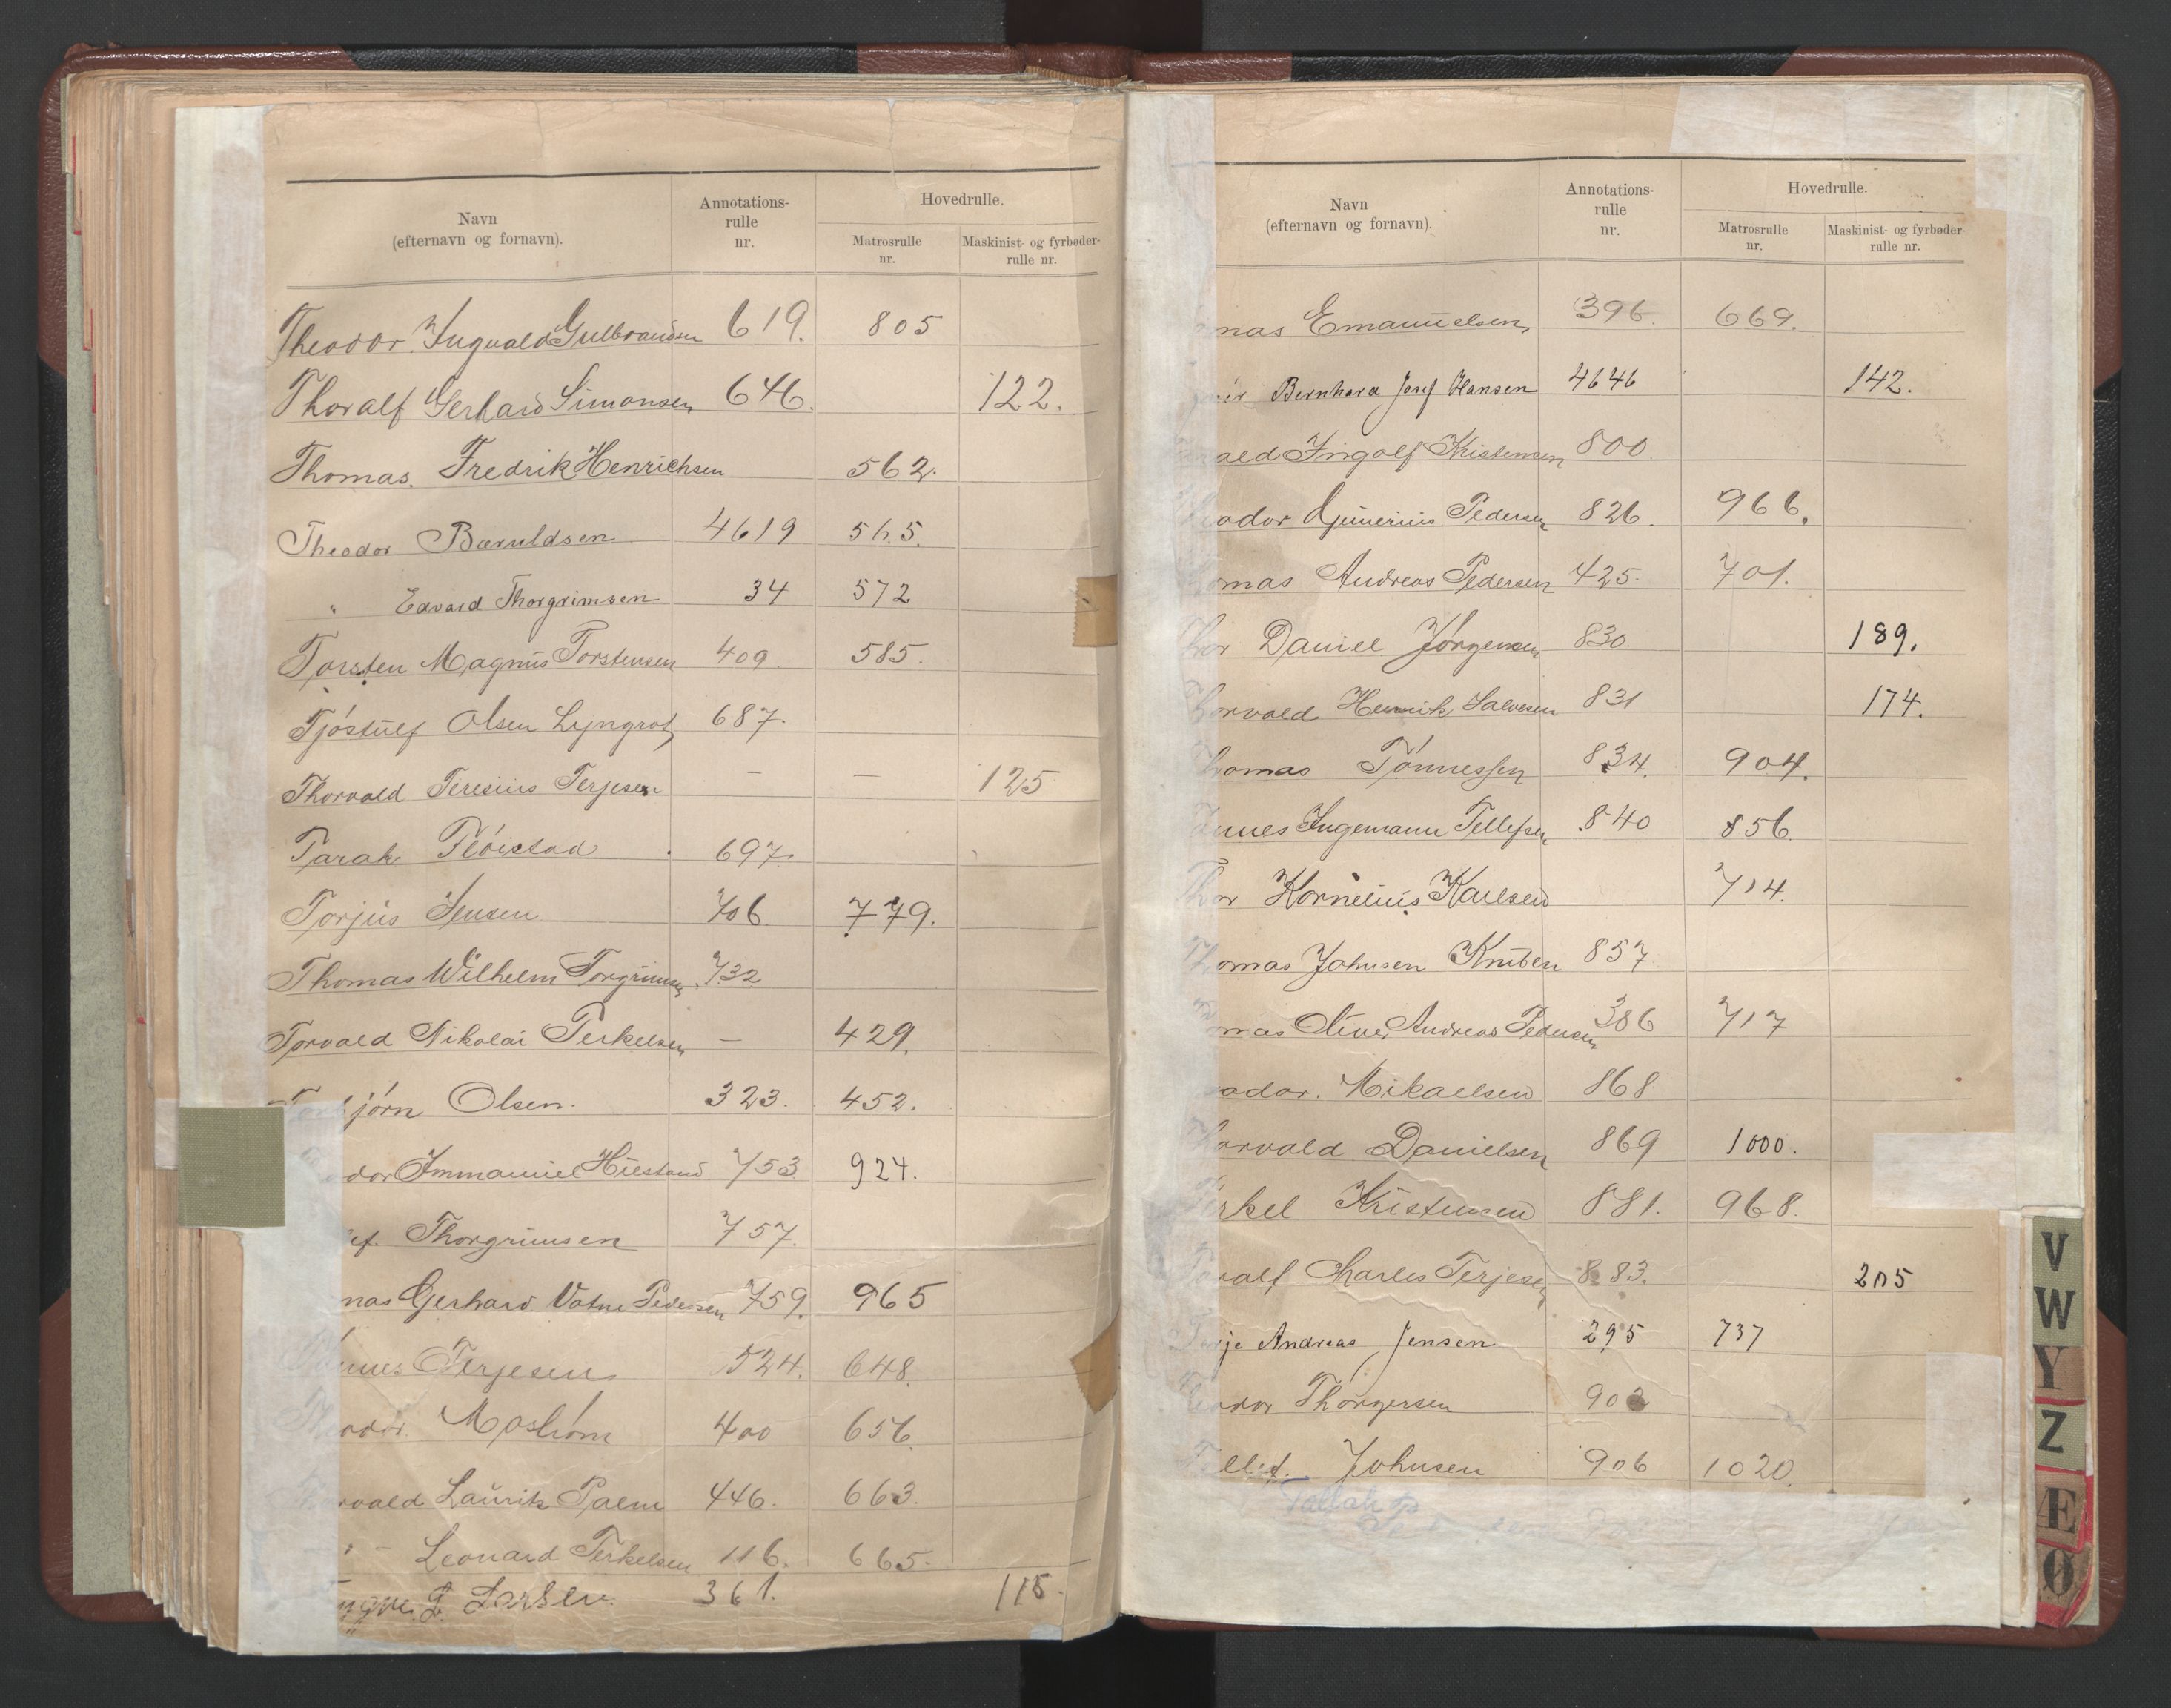 Navn (efternavn og fornavn). Annotations-rulle nr. Hovedrulle. Matrosrulle nr. Maskinist- og fyrbøder-rulle nr.
Theodor Ingvald Gulbrandsen 619. 805
Thoralf Gerhard Simonsen 646. 122.
Thomas. Fredrik Henrichsen 562.
Theodor Baruldsen 4619 565.
" Edvard Thorgrimsen 34 572
Torsten Magnus Torstensen 409. 585.
Tjöstulf Olsen 687.
Thorvald Teresius Terjesen — — 125
Tarak Flöistad 697.
Torjus Jensen 706 779.
Thomas Wilhelm Torgrimsen 732
Torvald Nikolai Terkelsen — 429.
jörn Olsen. 323. 452.
dor Immanuel 753 924.
ef. Thorgrimsen 757.
mas Gerhard Vatne Pedersen 759. 965
nnes Terjesen 524. 648.
odor. 400 656.
rvald Lauritz Palm 446. 663.
" - Leonard Terkelsen 116. 665.
ygve. L. Larsen. 361. 115.
Navn (efternavn og fornavn). Annotations-rulle nr. Hovedrulle. Matrosrulle nr. Maskinist- og fyrbøder-rulle nr.
mas Emanuelsen 396. 669.
Bernhard Josef Hansen 4646 142.
ald Ingolf Kristensen 800
odor Pedersen 826. 966.
omas Andreas Pedersen 425. 701.
Thor Daniel Jörgensen 830. 189.
Thorvald Henrik Salvesen 831 174.
Thomas Tönnessen 834. 904.
nnes Ingemann Tellefsen 840 856.
Thor Kornelius Karlsen 714.
Thomas Johnsen Knuben 857
omas Oliver Andreas Pedersen 386 717
odor. Mikaelsen 868
Thorvald Danielsen 869 1000.
Terkel Kristensen 881. 968.
Toralf Charles Terjesen 883. 205
Terje Andreas Jensen 295 737
eodor Thorgersen 902
Tellef. Johnsen 906 1020.
V
W
Y
Z
Æ
Ø